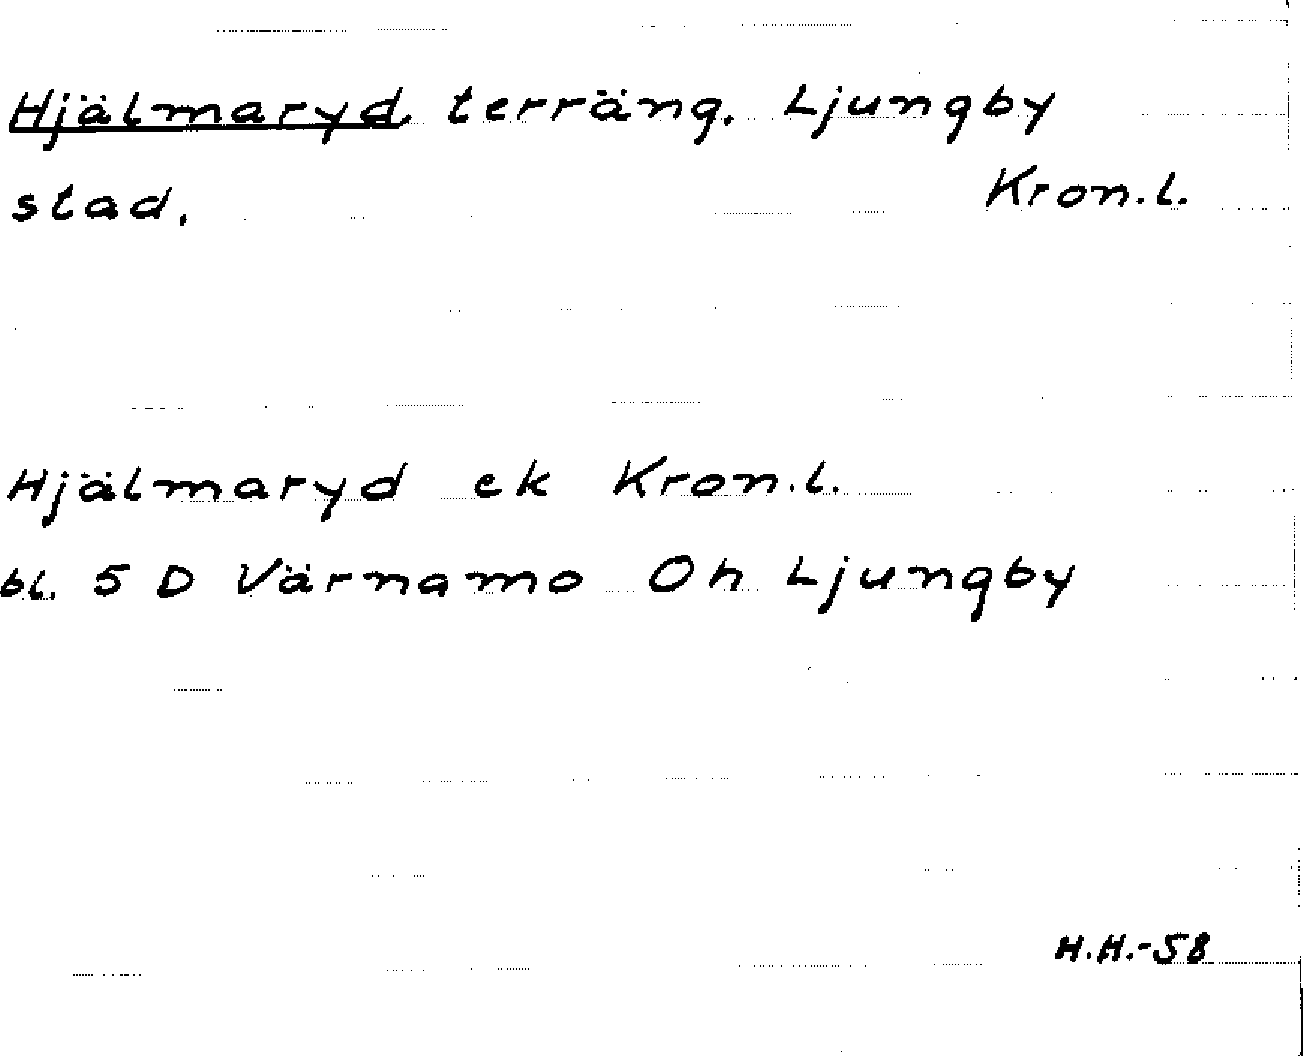 Hjälmaryd, terräng. Ljungby
stad. Kron.l.
Hjälmaryd ek Kron.l.
bl. 5 D Värnamo Oh Ljungby
H.H.-58